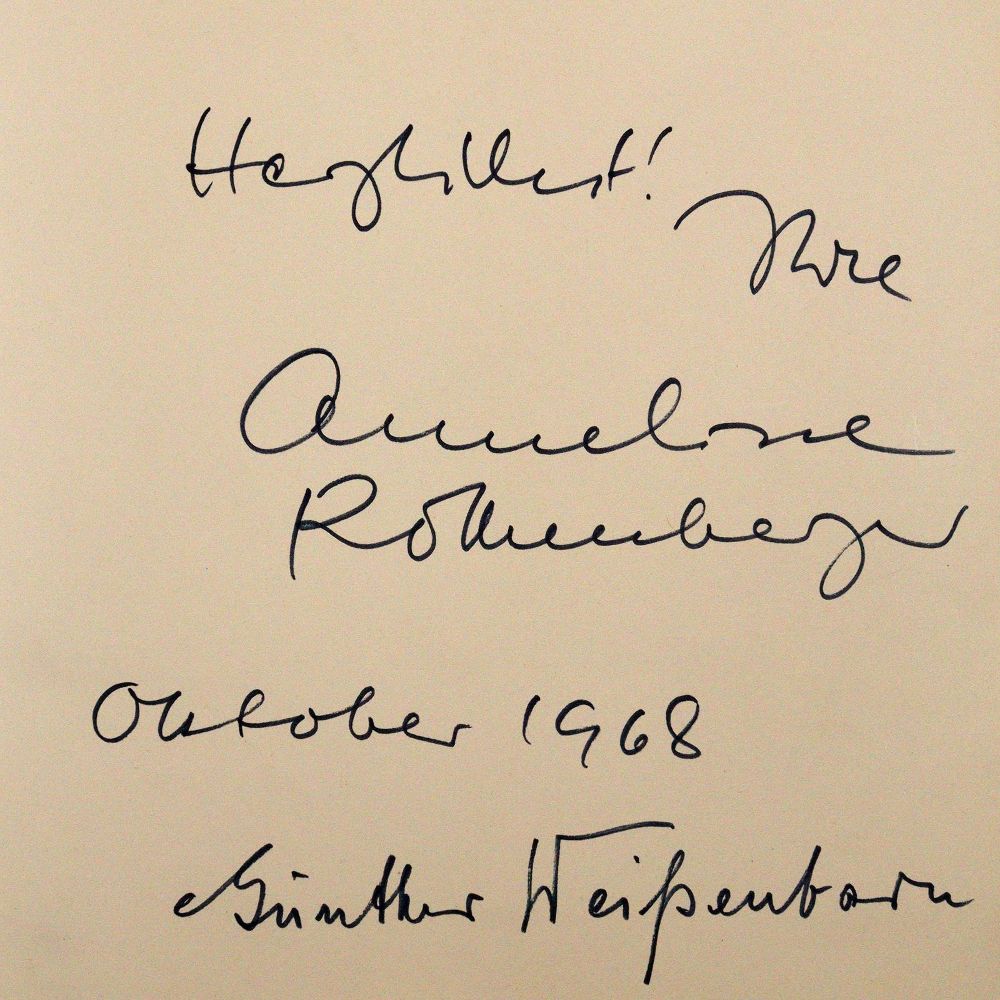 Herzlichst!
Ihre
Anneliese
Rothenberger
Oktober 1968
Günther Weißenborn